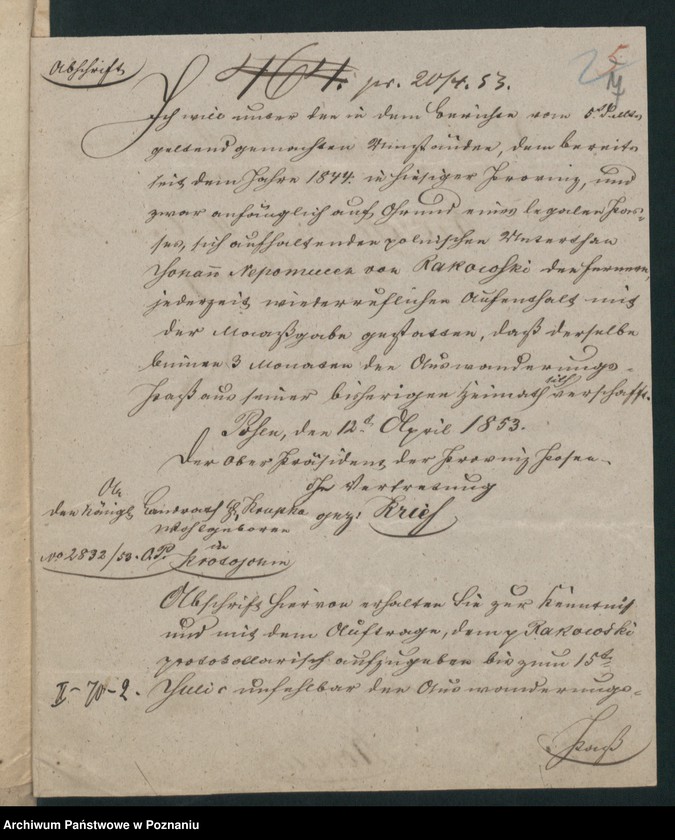 Abschrift
464. pr. 20/4. 53.
5
Ich will unter den in dem Berichte vom 5t. d. Mts
geltend gemachten Umständen, dem bereits
seit dem Jahre 1844. in hiesiger Provinz, und
zwar anfänglich auf Grund eines legalen Pas-
ses, sich aufhaltenden polnischen Unterthan
Johann Nepomucen von Rakowski den fernern,
jederzeit wiederruflichen Aufenthalt mit
der Maaßgabe gestatten, daß derselbe
binnen 3 Monaten den Auswanderungs-
Paß aus seiner bisherigen Heimath sich verschafft.
Posen, den 12t. April 1853.
Der Ober Präsident der Provinz Posen
In Vertretung
gez: Krief
An
den Königl. Landrath H. Krupka
Wohlgeboren
in
Krotoschin
No 2832/53. O.P.
Abschrift hiervon erhalten Sie zur Kenntniß
und mit dem Auftrage, dem p Rakowski
protokollarisch aufzugeben bis zum 15ten
Juli c unfehlbar den Auswanderungs-
II-70-2.
Paß
Archiwum Państwowe w Poznaniu